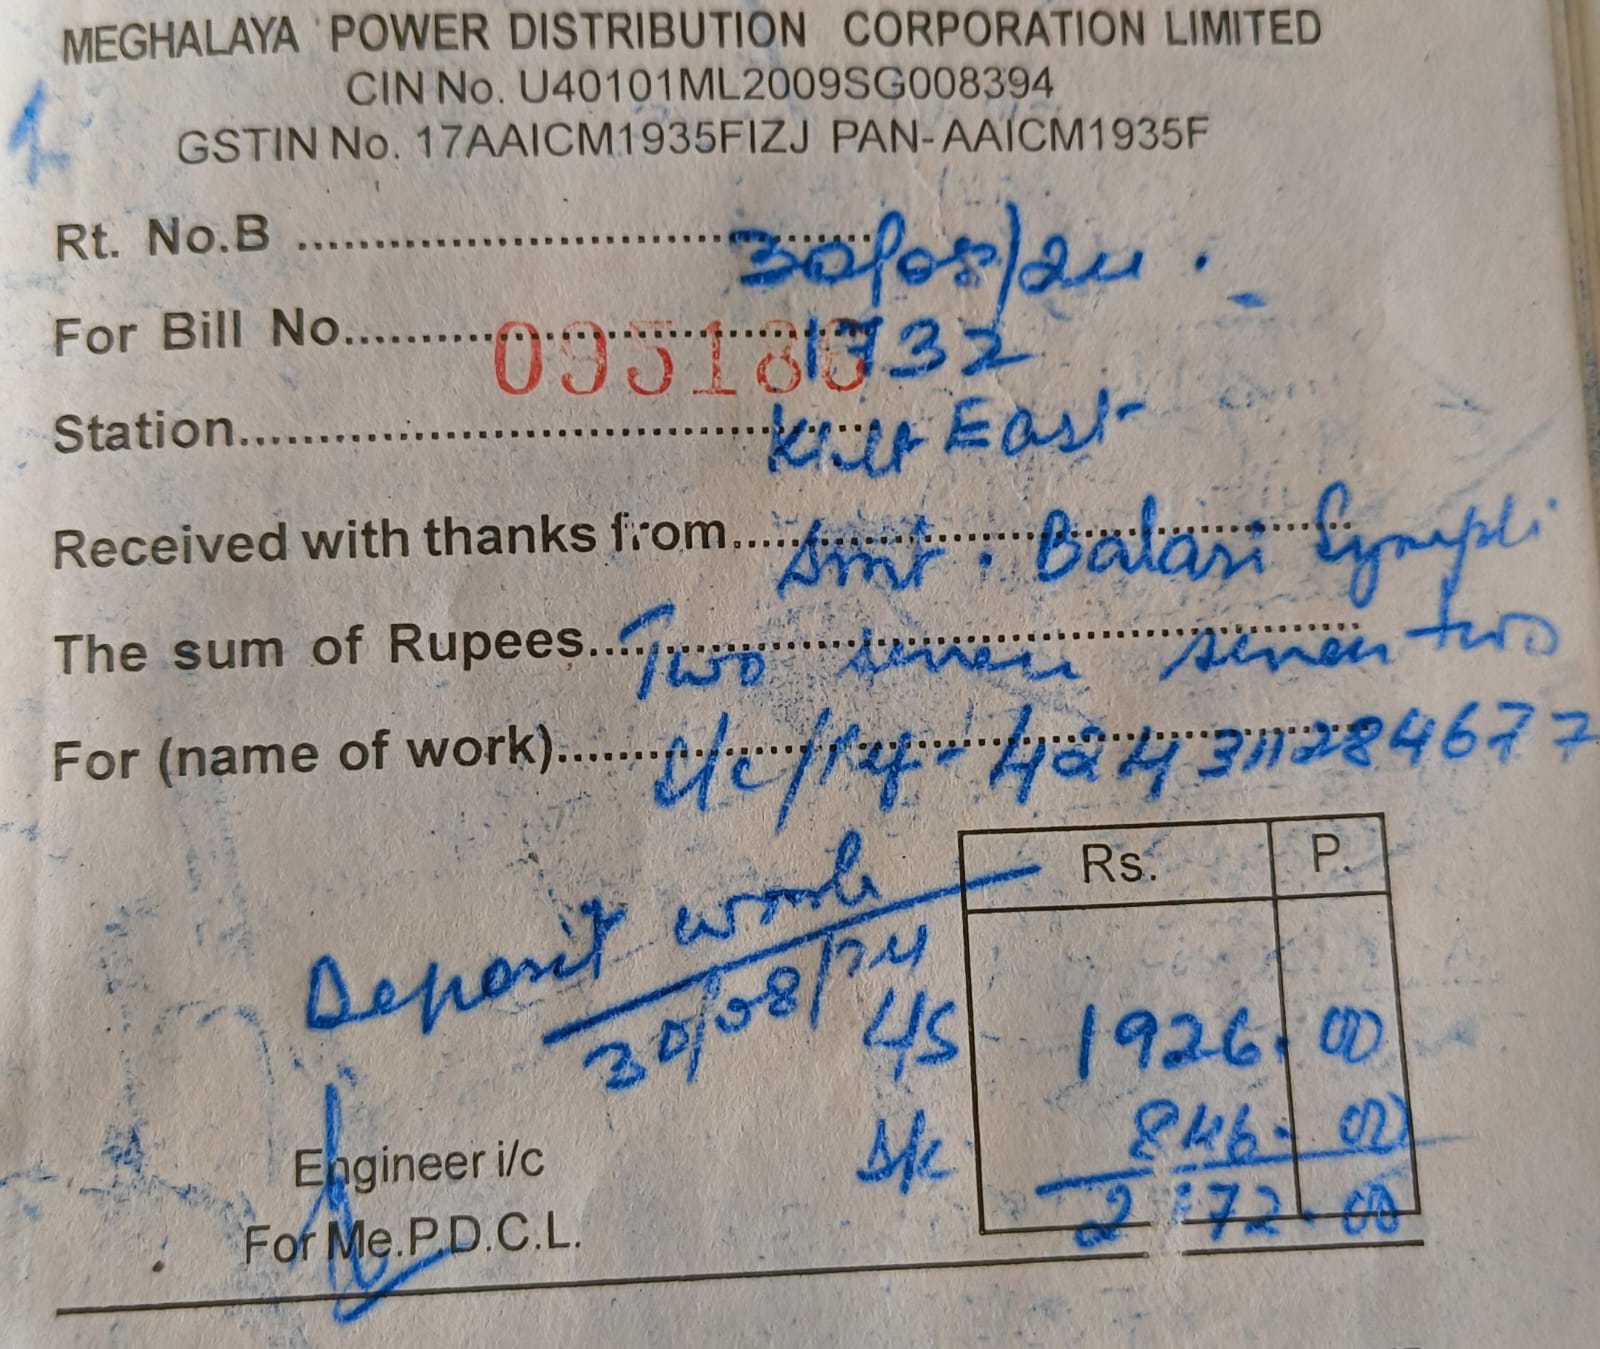 MEGHALAYA POWER DISTRIBUTION CORPORATION LIMITED
CIN No. U40101ML2009SG008394
GSTIN No. 17AAICM1935FIZJ PAN-AAICM1935F
Rt. No.B .......... 30/08/24.
For Bill No.......... 1732
095186
Station.......... East
Received with thanks from.......... Smt. Balasi
The sum of Rupees.......... Two seven seven two
For (name of work)..........
Rs. P.
Deposit work
30/08/24
1926.00
Engineer i/c 846.00
For Me.P.D.C.L. 2 72.00